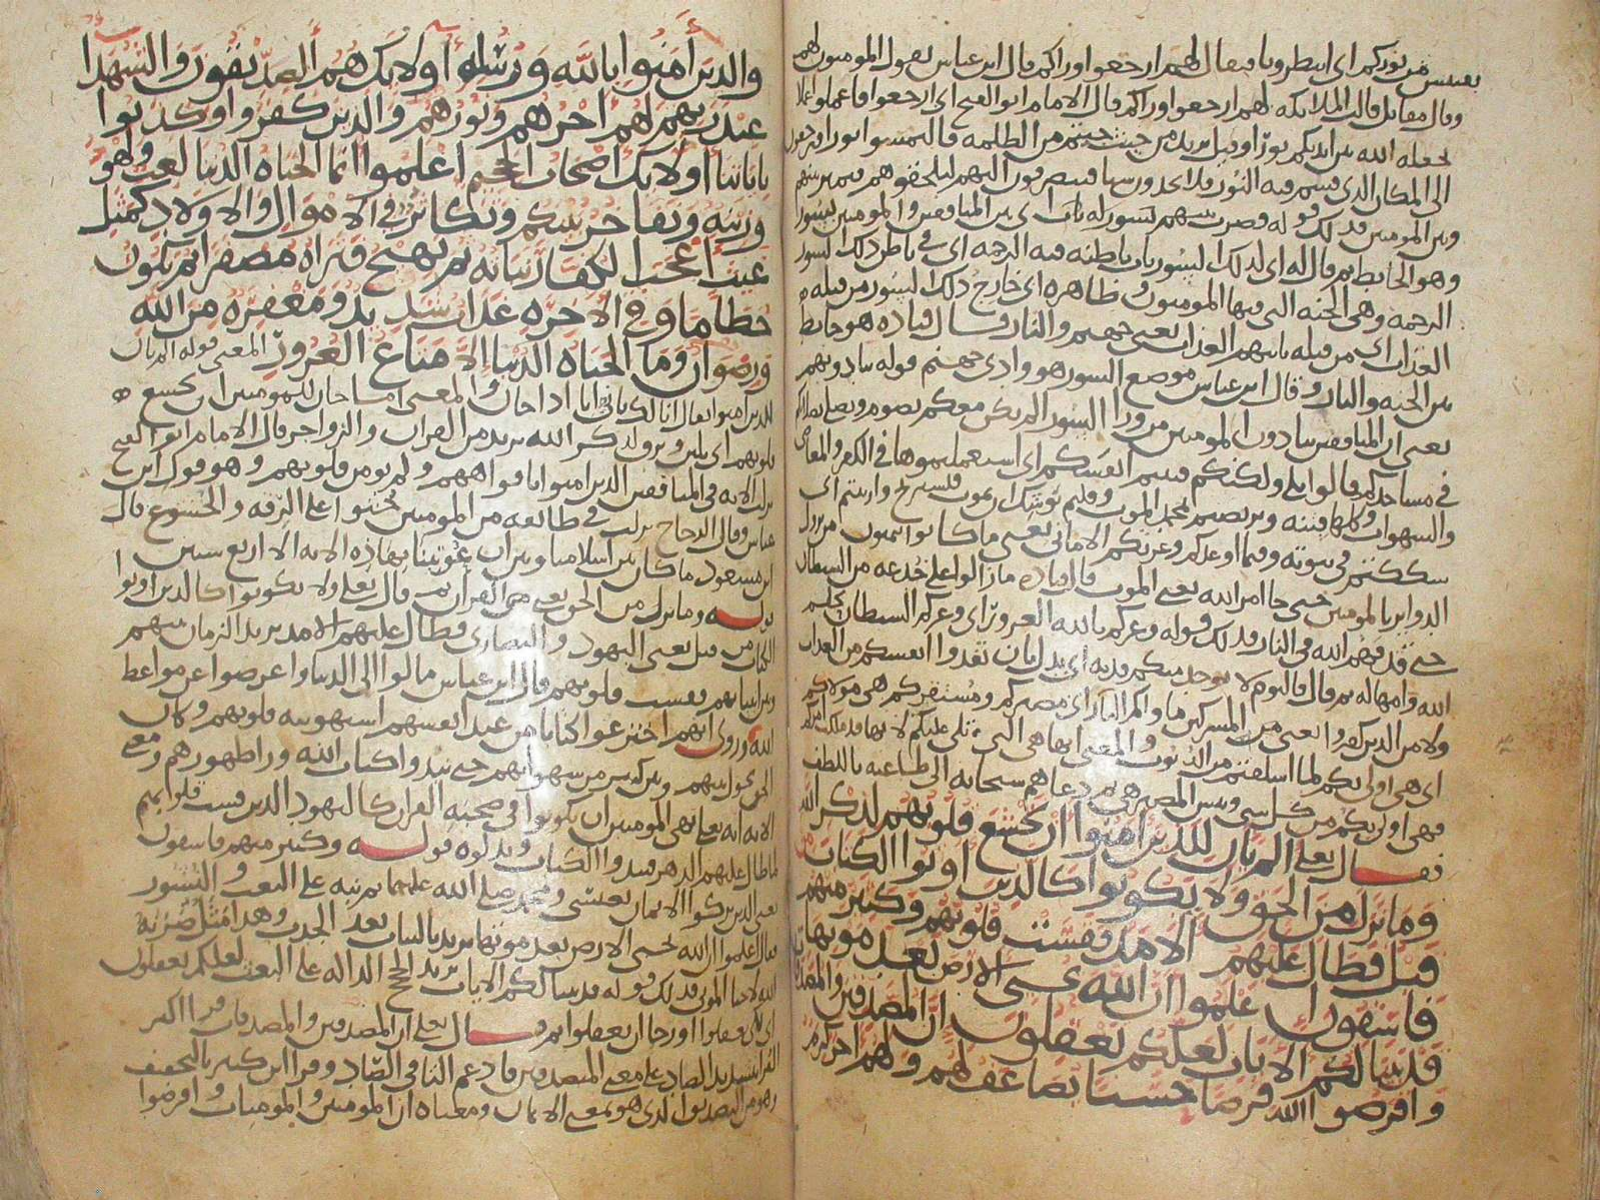 نقتبس من نوركم اى انتظرونا فيقال لهم ارجعوا وراكم قال ابن عباس يقول المومنون لهم
وقال مقاتل قالت الملائكه لهم ارجعوا وراكم قال الامام ابو الفتح اى ارجعوا فاعملوا عملا
يجعله الله بين ايديكم نورًا وقيل يريد من حيث جيتم من الظلمه فالتمسوا نورا فيرجعون
الى المكان الذى قسم فيه النور فلا يجدون شيا فينصرفون اليهم ليلحقوهم فيميز بينهم
وبين المومنين فذلك قوله فضرب بينهم بسور له باب اى بين المنافقين والمومنين بسور
وهو الحايط ثم قال له اى لذلك السور باب باطنه فيه الرحمه اى فى باطن ذلك السور
الرحمه وهى الجنه التى فيها المومنون وظاهره اى خارج ذلك السور من قبله
العذاب اى من قبله ياتيهم العذاب يعنى جهنم والنار وقال قتاده هو حايط
بين الجنه والنار وقال ابن عباس موضع السور هو وادى جهنم قوله ينادونهم
يعنى ان المنافقين ينادون المومنين من ورا السور الم نكن معكم نصوم ونصلى
فى مساجدكم قالوا بلى ولكنكم فتنتم انفسكم اى استعملتموها فى الكفر والمعاصى
والشهوات وكلها فتنه وتربصتم بمحمد الموت وقلتم يوشك ان يموت فنستريح وارتبتم اى
شككتم فى نبوته وفيما اوعدكم وغرتكم الامانى يعنى ما كانوا يتمنون من نزول
الدواير بالمومنين حتى جا امر الله يعنى الموت قال قتاده ما زالوا على خدعه من الشيطان
حتى قذفهم الله فى النار فذلك قوله وغركم بالله الغرور اى وغركم الشيطان بحلم
الله وامهاله ثم قال فاليوم لا يوخذ منكم فديه اى بدل بان تفدوا انفسكم من العذاب
ولا من الذين كفروا يعنى من المشركين ماواكم النار اى مصيركم ومستقركم هى مولاكم
اى هى اولى بكم لما اسلفتم من الذنوب والمعنى انها هى التى تلى عليكم لانها قد ملكت امركم
فهى اولى بكم من كل شى وبيس المصير هى ثم دعاهم سبحانه الى طاعته باللطف
فقال تعلى الم يان للذين امنوا ان تخشع قلوبهم لذكر الله
وما نزل من الحق ولا يكونوا كالذين اوتوا الكتاب من
قبل فطال عليهم الامد فقست قلوبهم وكثير منهم
فاسقون اعلموا ان الله يحيى الارض بعد موتها
قد بينا لكم الايات لعلكم تعقلون ان المصدقين والمصدقات
واقرضوا الله قرضا حسنا يضاعف لهم ولهم اجر كريم
والذين امنوا بالله ورسله اولايك هم الصديقون والشهدا
عند ربهم لهم اجرهم ونورهم والذين كفروا وكذبوا
باياتنا اولايك اصحاب الجحيم اعلموا انما الحياه الدنيا لعب ولهو
وزينه وتفاخر بينكم وتكاثر فى الاموال والاولاد كمثل
غيث اعجب الكفار نباته ثم يهيج فتراه مصفرا ثم يكون
حطاما وفى الاخره عذاب شديد ومغفره من الله
ورضوان وما الحياه الدنيا الا متاع الغرور المعنى قوله الم يان
للذين امنوا يقال انا لك يانى انا اذا حان والمعنى اما حان للمومنين ان تخشع
قلوبهم اى تلين وترق لذكر الله يريد من القران والزواجر قال الامام ابو الفتح
نزلت الايه فى المنافقين الذين امنوا بافواههم ولم تومن قلوبهم وهو قول ابن
عباس وقال الزجاج نزلت فى طائفه من المومنين حثوا على الرقه والخشوع قال
ابن مسعود ما كان بين اسلامنا وبين ان عوتبنا بهاذه الايه الا اربع سنين
قوله وما نزل من الحق يعنى من القران ثم قال تعلى ولا يكونوا كالذين اوتوا
الكتاب من قبل يعنى اليهود والنصارى فطال عليهم الامد يريد الزمان بينهم
وبين انبيايهم فقست قلوبهم قال ابن عباس مالوا الى الدنيا واعرضوا عن مواعظ
الله وروى انهم اخترعوا كتابا من عند انفسهم استهوته قلوبهم وكان
الحق يحول بينهم وبين كثير من شهواتهم حتى نبذوا كتاب الله ورا ظهورهم ومعنى
الايه انه تعلى نهى المومنين ان يكونوا فى صحبه القران كاليهود الذين قست قلوبهم
لما طال عليهم الدهر فبدلوا الكتاب وبدلوه قوله وكثير منهم فاسقون
يعنى الذين تركوا الايمان بعيسى ومحمد صلى الله عليهما ثم نبه على البعث والنشور
فقال اعلموا ان الله يحيى الارض بعد موتها يريد بالنبات بعد الجدب وهذا مثل ضربه
الله لاحيا الموتى فذلك قوله قد بينا لكم الايات يريد الحجج الداله على البعث لعلكم تعقلون
اى لكى تعقلوا او رجا ان تعقلوا ثم قال تعلى ان المصدقين والمصدقات قرا اكثر
القرا بتشديد الصاد على معنى المتصدقين فادغم التا فى الصاد وقرا ابن كثير بالتخفيف
وهو من التصديق الذى هو بمعنى الايمان ومعناه ان المومنين والمومنات واقرضوا